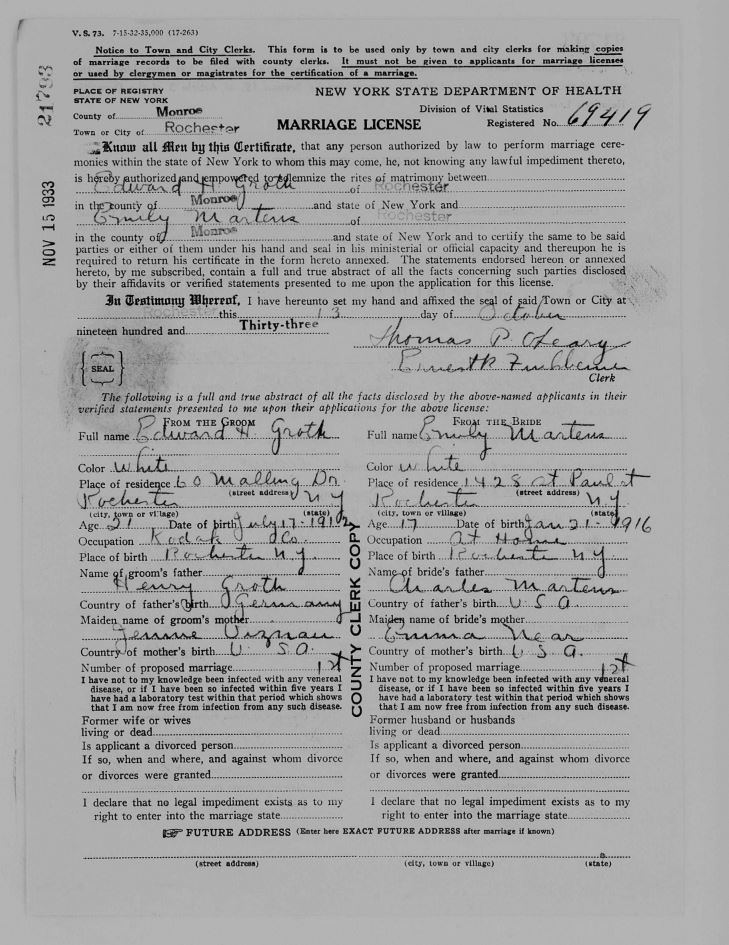 V. S. 73. 7-15-32-35,000 (17-263)
Notice to Town and City Clerks. This form is to be used only by town and city clerks for making copies
of marriage records to be filed with county clerks. It must not be given to applicants for marriage licenses
or used by clergymen or magistrates for the certification of a marriage.
21793
NOV 15 1933
PLACE OF REGISTRY
STATE OF NEW YORK
County of Monroe
Town or City of Rochester
NEW YORK STATE DEPARTMENT OF HEALTH
Division of Vital Statistics
Registered No. 69419
MARRIAGE LICENSE
Know all Men by this Certificate, that any person authorized by law to perform marriage cere-
monies within the state of New York to whom this may come, he, not knowing any lawful impediment thereto,
is hereby authorized and empowered to solemnize the rites of matrimony between
Edward H. Groth of Rochester
in the county of Monroe and state of New York and
Emily Martens of Rochester
in the county of Monroe and state of New York and to certify the same to be said
parties or either of them under his hand and seal in his ministerial or official capacity and thereupon he is
required to return his certificate in the form hereto annexed. The statements endorsed hereon or annexed
hereto, by me subscribed, contain a full and true abstract of all the facts concerning such parties disclosed
by their affidavits or verified statements presented to me upon the application for this license.
In Testimony Whereof, I have hereunto set my hand and affixed the seal of said Town or City at
Rochester this 13 day of October
nineteen hundred and Thirty-three
Thomas P. O'Leary
SEAL
Clerk
The following is a full and true abstract of all the facts disclosed by the above-named applicants in their
verified statements presented to me upon their applications for the above license:
FROM THE GROOM
Full name Edward H. Groth
Color White
Place of residence 60 Malling Dr.
(street address)
Rochester N Y
(city, town or village) (state)
Age 21 Date of birth July 17-1912
Occupation Kodak Co.
Place of birth Rochester N.Y.
Name of groom's father
Henry Groth
Country of father's birth Germany
Maiden name of groom's mother
Jennie
Country of mother's birth U. S. A.
Number of proposed marriage 1st
I have not to my knowledge been infected with any venereal
disease, or if I have been so infected within five years I
have had a laboratory test within that period which shows
that I am now free from infection from any such disease.
Former wife or wives
living or dead
Is applicant a divorced person
If so, when and where, and against whom divorce
or divorces were granted
I declare that no legal impediment exists as to my
right to enter into the marriage state
COUNTY CLERK COPY
FROM THE BRIDE
Full name Emily Martens
Color White
Place of residence 1428 St Paul st
(street address)
Rochester N.Y.
(city, town or village) (state)
Age 17 Date of birth Jan 21-1916
Occupation At Home
Place of birth Rochester N.Y.
Name of bride's father
Charles Martens
Country of father's birth U. S. A.
Maiden name of bride's mother
Emma Near
Country of mother's birth U S A.
Number of proposed marriage 1st
I have not to my knowledge been infected with any venereal
disease, or if I have been so infected within five years I
have had a laboratory test within that period which shows
that I am now free from infection from any such disease.
Former husband or husbands
living or dead
Is applicant a divorced person
If so, when and where, and against whom divorce
or divorces were granted
I declare that no legal impediment exists as to my
right to enter into the marriage state
FUTURE ADDRESS (Enter here EXACT FUTURE ADDRESS after marriage if known)
(street address) (city, town or village) (state)